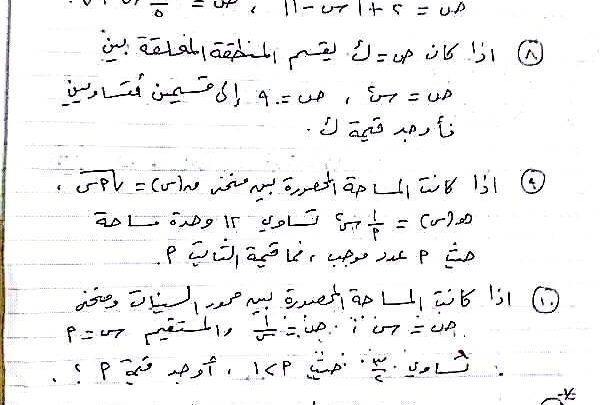 ص = ٢ + |س - ١| ، ص =
٨) اذا كان ص = ك يقسم المنطقة المغلقة بين
ص = س٢ ، ص = ٩ إلى قسمين متساويين
فأوجد قيمة ك .
٩) اذا كانت المساحة المحصورة بين منحنى ق(س) = √(٢س) ،
هـ(س) = ١/٢ س٢ تساوي ١٢ وحدة مساحة
حيث ٢ عدد موجب ، فما قيمة الثابت ٢ .
١٠) اذا كانت المساحة المحصورة بين محور السينات ومنحنى
ص = س ، ص = ١/س والمستقيم س = ٢
تساوي ٣/٢ حيث ٢ > ١ ، أوجد قيمة ٢ ؟ .